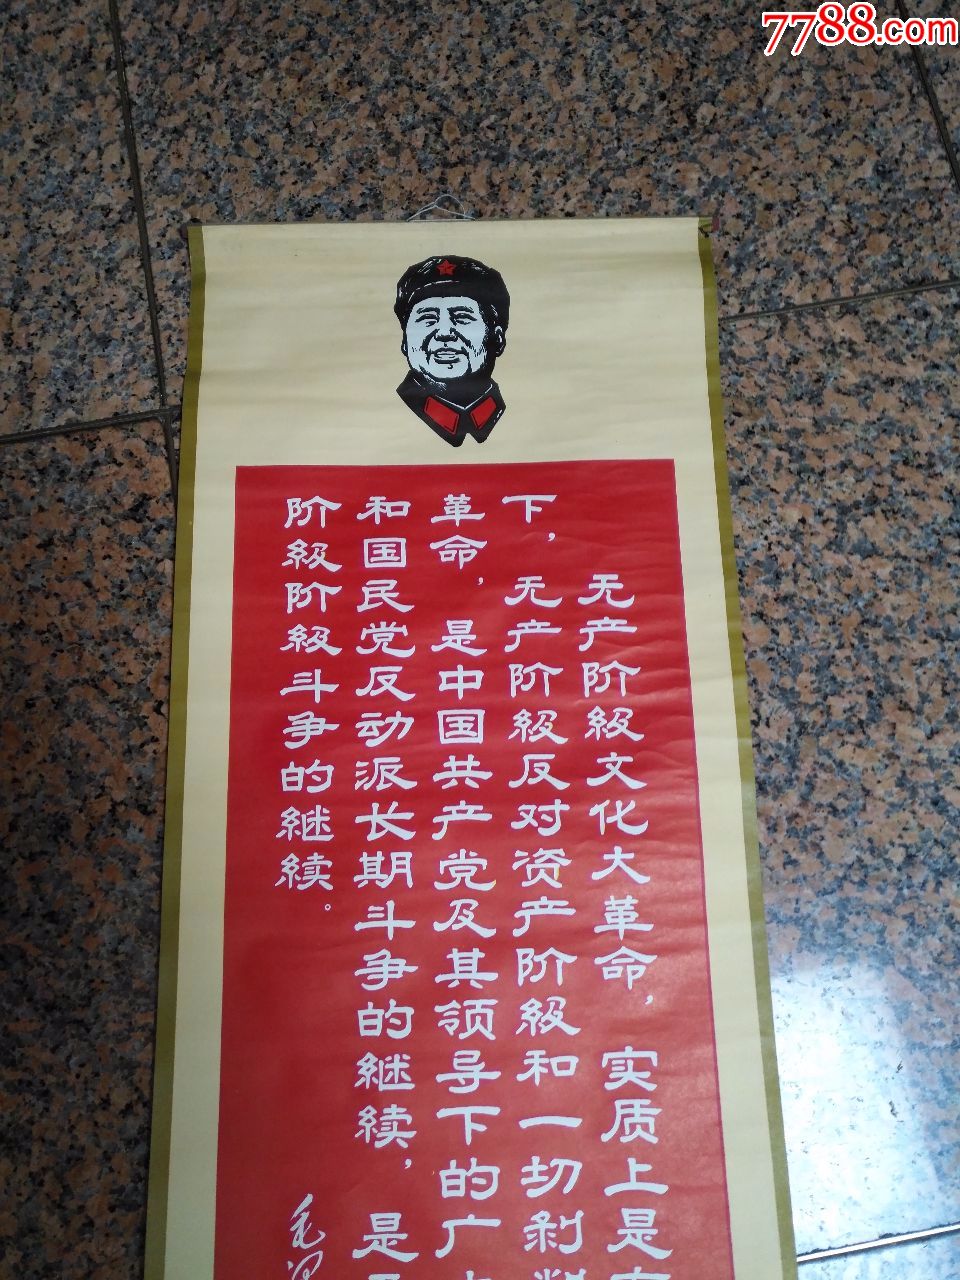 7788.com
无产阶级文化大革命，实质上是在
下，无产阶级反对资产阶级和一切剥
革命，是中国共产党及其领导下的广
和国民党反动派长期斗争的继续，是
阶级阶级斗争的继续。
毛泽